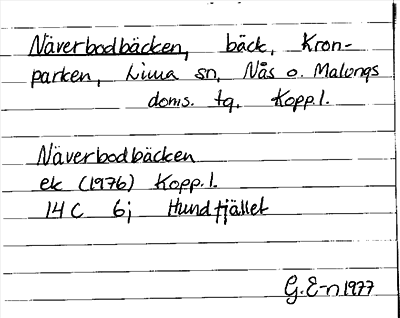 Näverbodbäcken, bäck, Kron-
parken, Lima sn, Nås o. Malungs
doms. tg, Kopp.l.
Näverbodbäcken
ek (1976) Kopp.l.
14 C 6j Hundfjället
G.E-n 1977